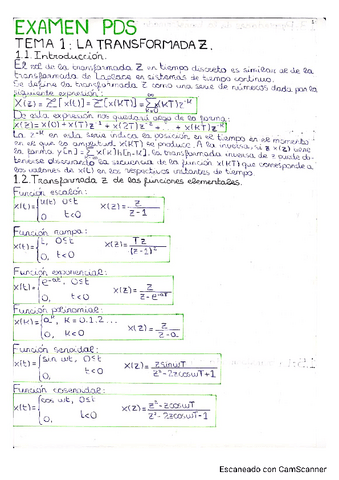 EXAMEN PDS
TEMA 1: LA TRANSFORMADA Z.
1.1. Introducción.
El rol de la transformada Z en tiempo discreto es similar al de la
transformada de Laplace en sistemas de tiempo continuo.
Se define la transformada Z como una serie de números dada por la
siguiente expresión:
X(z) = Z[x(t)] = Z[x(kT)] = Σ x(kT) z^-k
De esta expresión nos quedará algo de la forma:
X(z) = x(0) + x(T)z^-1 + x(2T)z^-2 + ... + x(kT)z^-k
La z^-k en esta serie indica la posición en el tiempo en el momento
en el que la amplitud x(kT) se produce. A la inversa, si X(z) viene
la forma y[n] = Σ x[k]h[n-k], la transformada inversa de z puede ob-
tenerse observando la secuencia de la función x(kT) que corresponde a
los valores de x(t) en los respectivos instantes de tiempo.
1.2. Transformada Z de las funciones elementales.
Función escalón:
x(t) = { u(t) 0≤t ; 0, t<0 X(z) = z / (z-1)
Función rampa:
x(t) = { t, 0≤t ; 0, t<0 X(z) = Tz / (z-1)²
Función exponencial:
x(t) = { e^-at, 0≤t ; 0, t<0 X(z) = z / (z-e^-aT)
Función polinomial:
x(k) = { a^k, k=0,1,2... ; 0, t<0 X(z) = z / (z-a)
Función senoidal:
x(t) = { sin wt, 0≤t ; 0, t<0 X(z) = z sin wT / (z²-2z cos wT+1)
Función cosenoidal:
x(t) = { cos wt, 0≤t ; 0, t<0 X(z) = z²-z cos wT / (z²-2z cos wT+1)
Escaneado con CamScanner